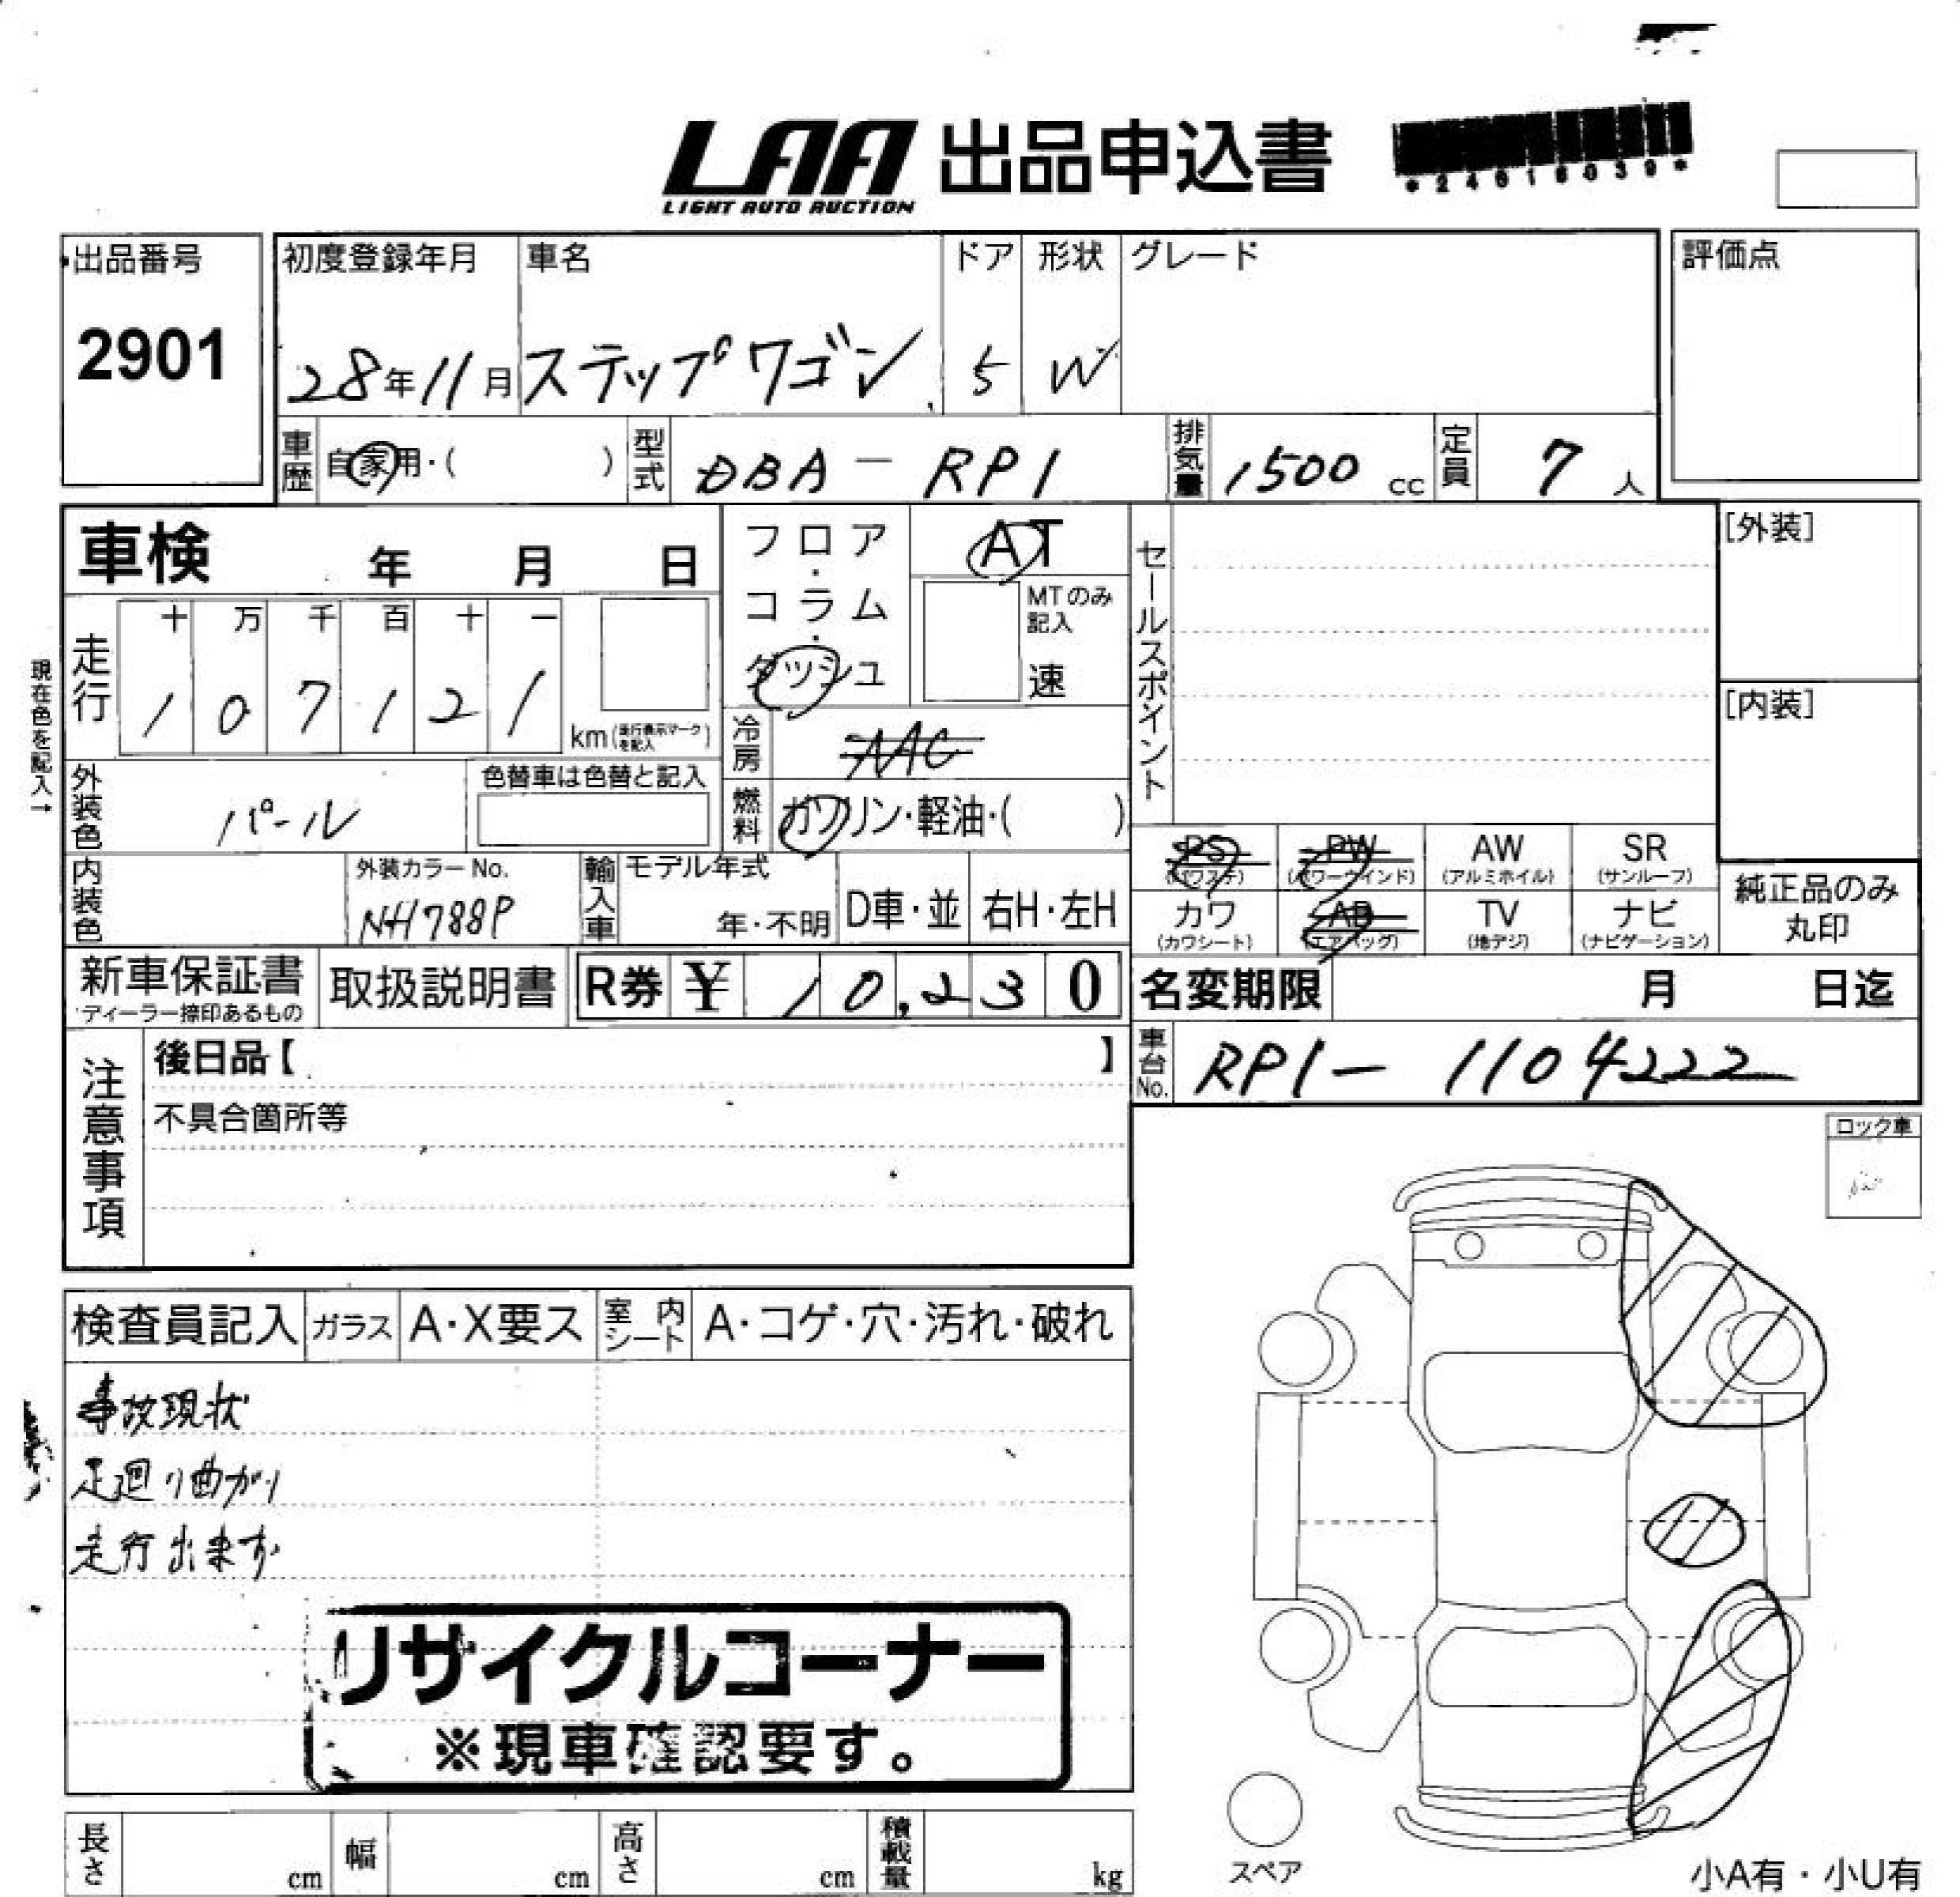 LAA 出品申込書
LIGHT AUTO AUCTION
*24618039*
出品番号
2901
初度登録年月
28年11月
車名
ステップワゴン
ドア
5
形状
W
グレード
評価点
車歴
自家用・( )
型式
DBA-RP1
排気量
1500 cc
定員
7 人
車検 年 月 日
フロア・コラム・ダッシュ
AT
MTのみ記入
速
セールスポイント
[外装]
[内装]
現在色を記入→
走行
十 万 千 百 十 一
1 0 7 1 2 1
km(走行表示マークを記入)
冷房
燃料
ガソリン・軽油・( )
外装色
パール
色替車は色替と記入
内装色
外装カラーNo.
NH788P
輸入車
モデル年式
年・不明
D車・並
右H・左H
PS (パワステ)
PW (パワーウインド)
AW (アルミホイル)
SR (サンルーフ)
カワ (カワシート)
AB (エアバッグ)
TV (地デジ)
ナビ (ナビゲーション)
純正品のみ丸印
新車保証書
ディーラー捺印あるもの
取扱説明書
R券 ¥ 10,230
名変期限 月 日迄
車台No.
RP1-1104222
注意事項
後日品【 】
不具合箇所等
ロック車
検査員記入
ガラス
A・X要ス
室内シート
A・コゲ・穴・汚れ・破れ
事故現状
足廻り曲がり
走行出来ず
リサイクルコーナー
※現車確認要す。
スペア
長さ cm
幅 cm
高さ cm
積載量 kg
小A有・小U有